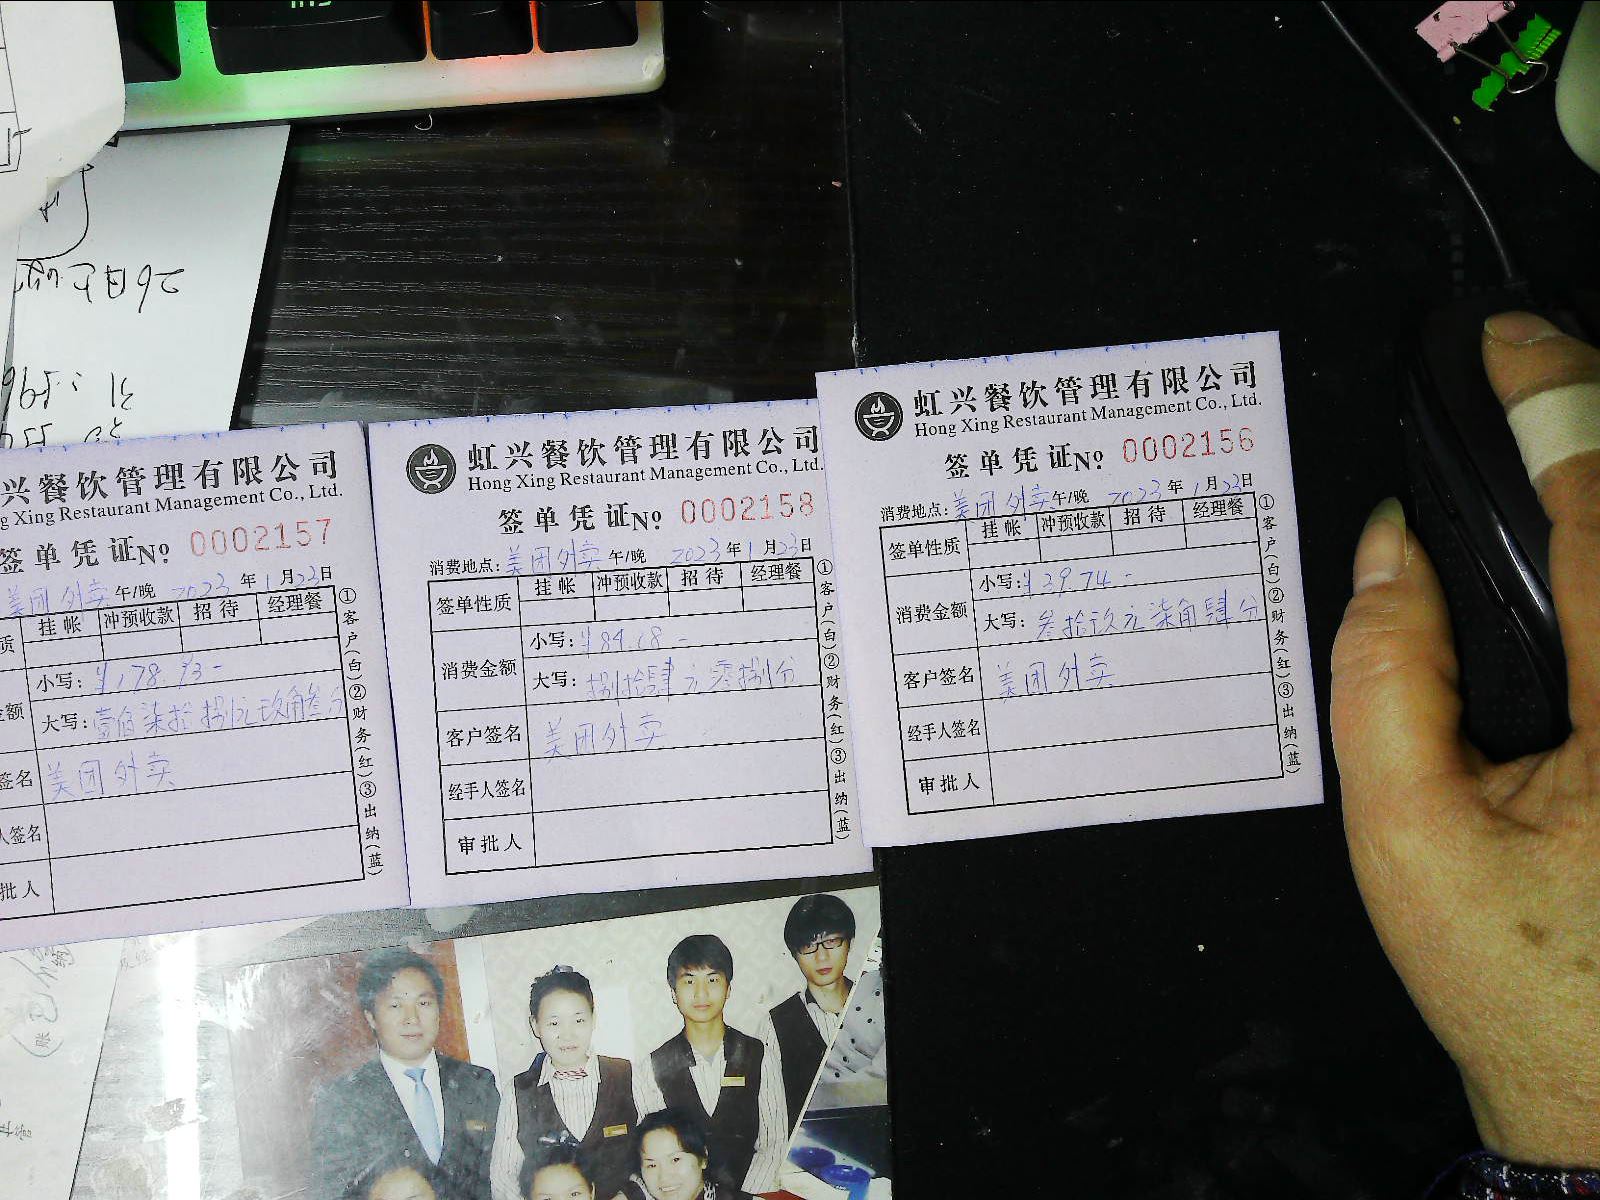 兴餐饮管理有限公司
g Xing Restaurant Management Co., Ltd.
签单凭证No 0002157
美团外卖 午/晚 2023年1月23日
质 挂帐 冲预收款 招待 经理餐
小写:¥178.93-
金额
大写:壹佰柒拾捌元玖角叁分
签名 美团外卖
人签名
批人
①客户(白)②财务(红)③出纳(蓝)
虹兴餐饮管理有限公司
Hong Xing Restaurant Management Co., Ltd.
签单凭证No 0002158
消费地点:美团外卖 午/晚 2023年1月23日
签单性质 挂帐 冲预收款 招待 经理餐
小写:¥84.08-
消费金额
大写:捌拾肆元零捌分
客户签名 美团外卖
经手人签名
审批人
①客户(白)②财务(红)③出纳(蓝)
虹兴餐饮管理有限公司
Hong Xing Restaurant Management Co., Ltd.
签单凭证No 0002156
消费地点:美团外卖 午/晚 2023年1月23日
签单性质 挂帐 冲预收款 招待 经理餐
小写:¥39.74-
消费金额
大写:叁拾玖元柒角肆分
客户签名 美团外卖
经手人签名
审批人
①客户(白)②财务(红)③出纳(蓝)